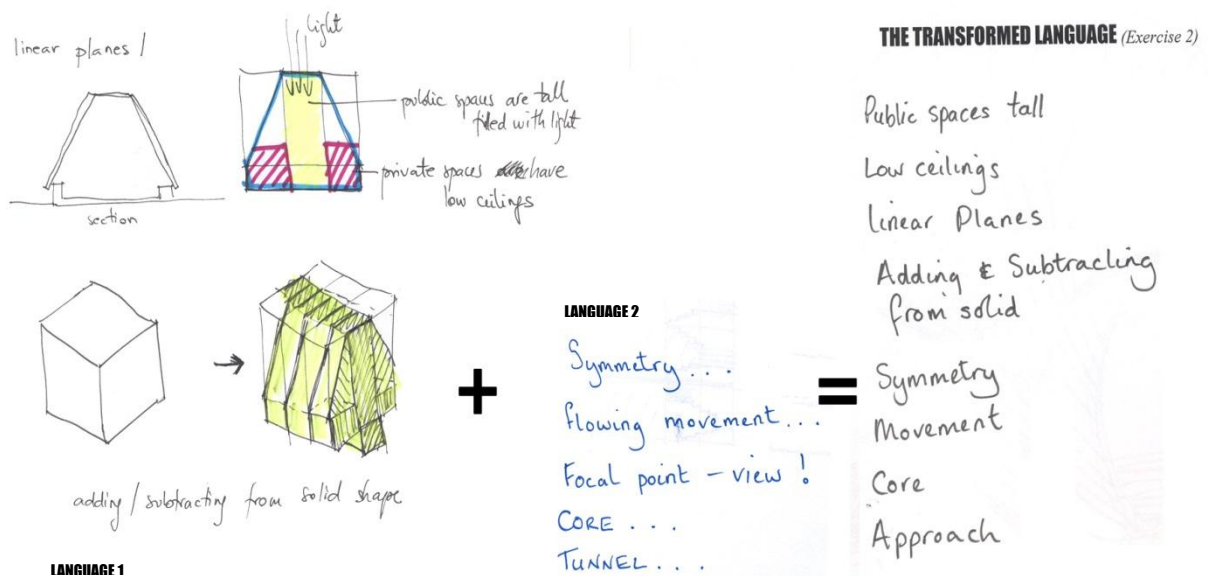 linear planes /
section
light
public spaces are tall
filled with light
private spaces have
low ceilings
adding / subtracting from solid shape
LANGUAGE 1
+
LANGUAGE 2
Symmetry...
flowing movement...
Focal point - view !
CORE ...
TUNNEL...
=
THE TRANSFORMED LANGUAGE (Exercise 2)
Public spaces tall
Low ceilings
linear Planes
Adding & Subtracting
from solid
Symmetry
Movement
Core
Approach